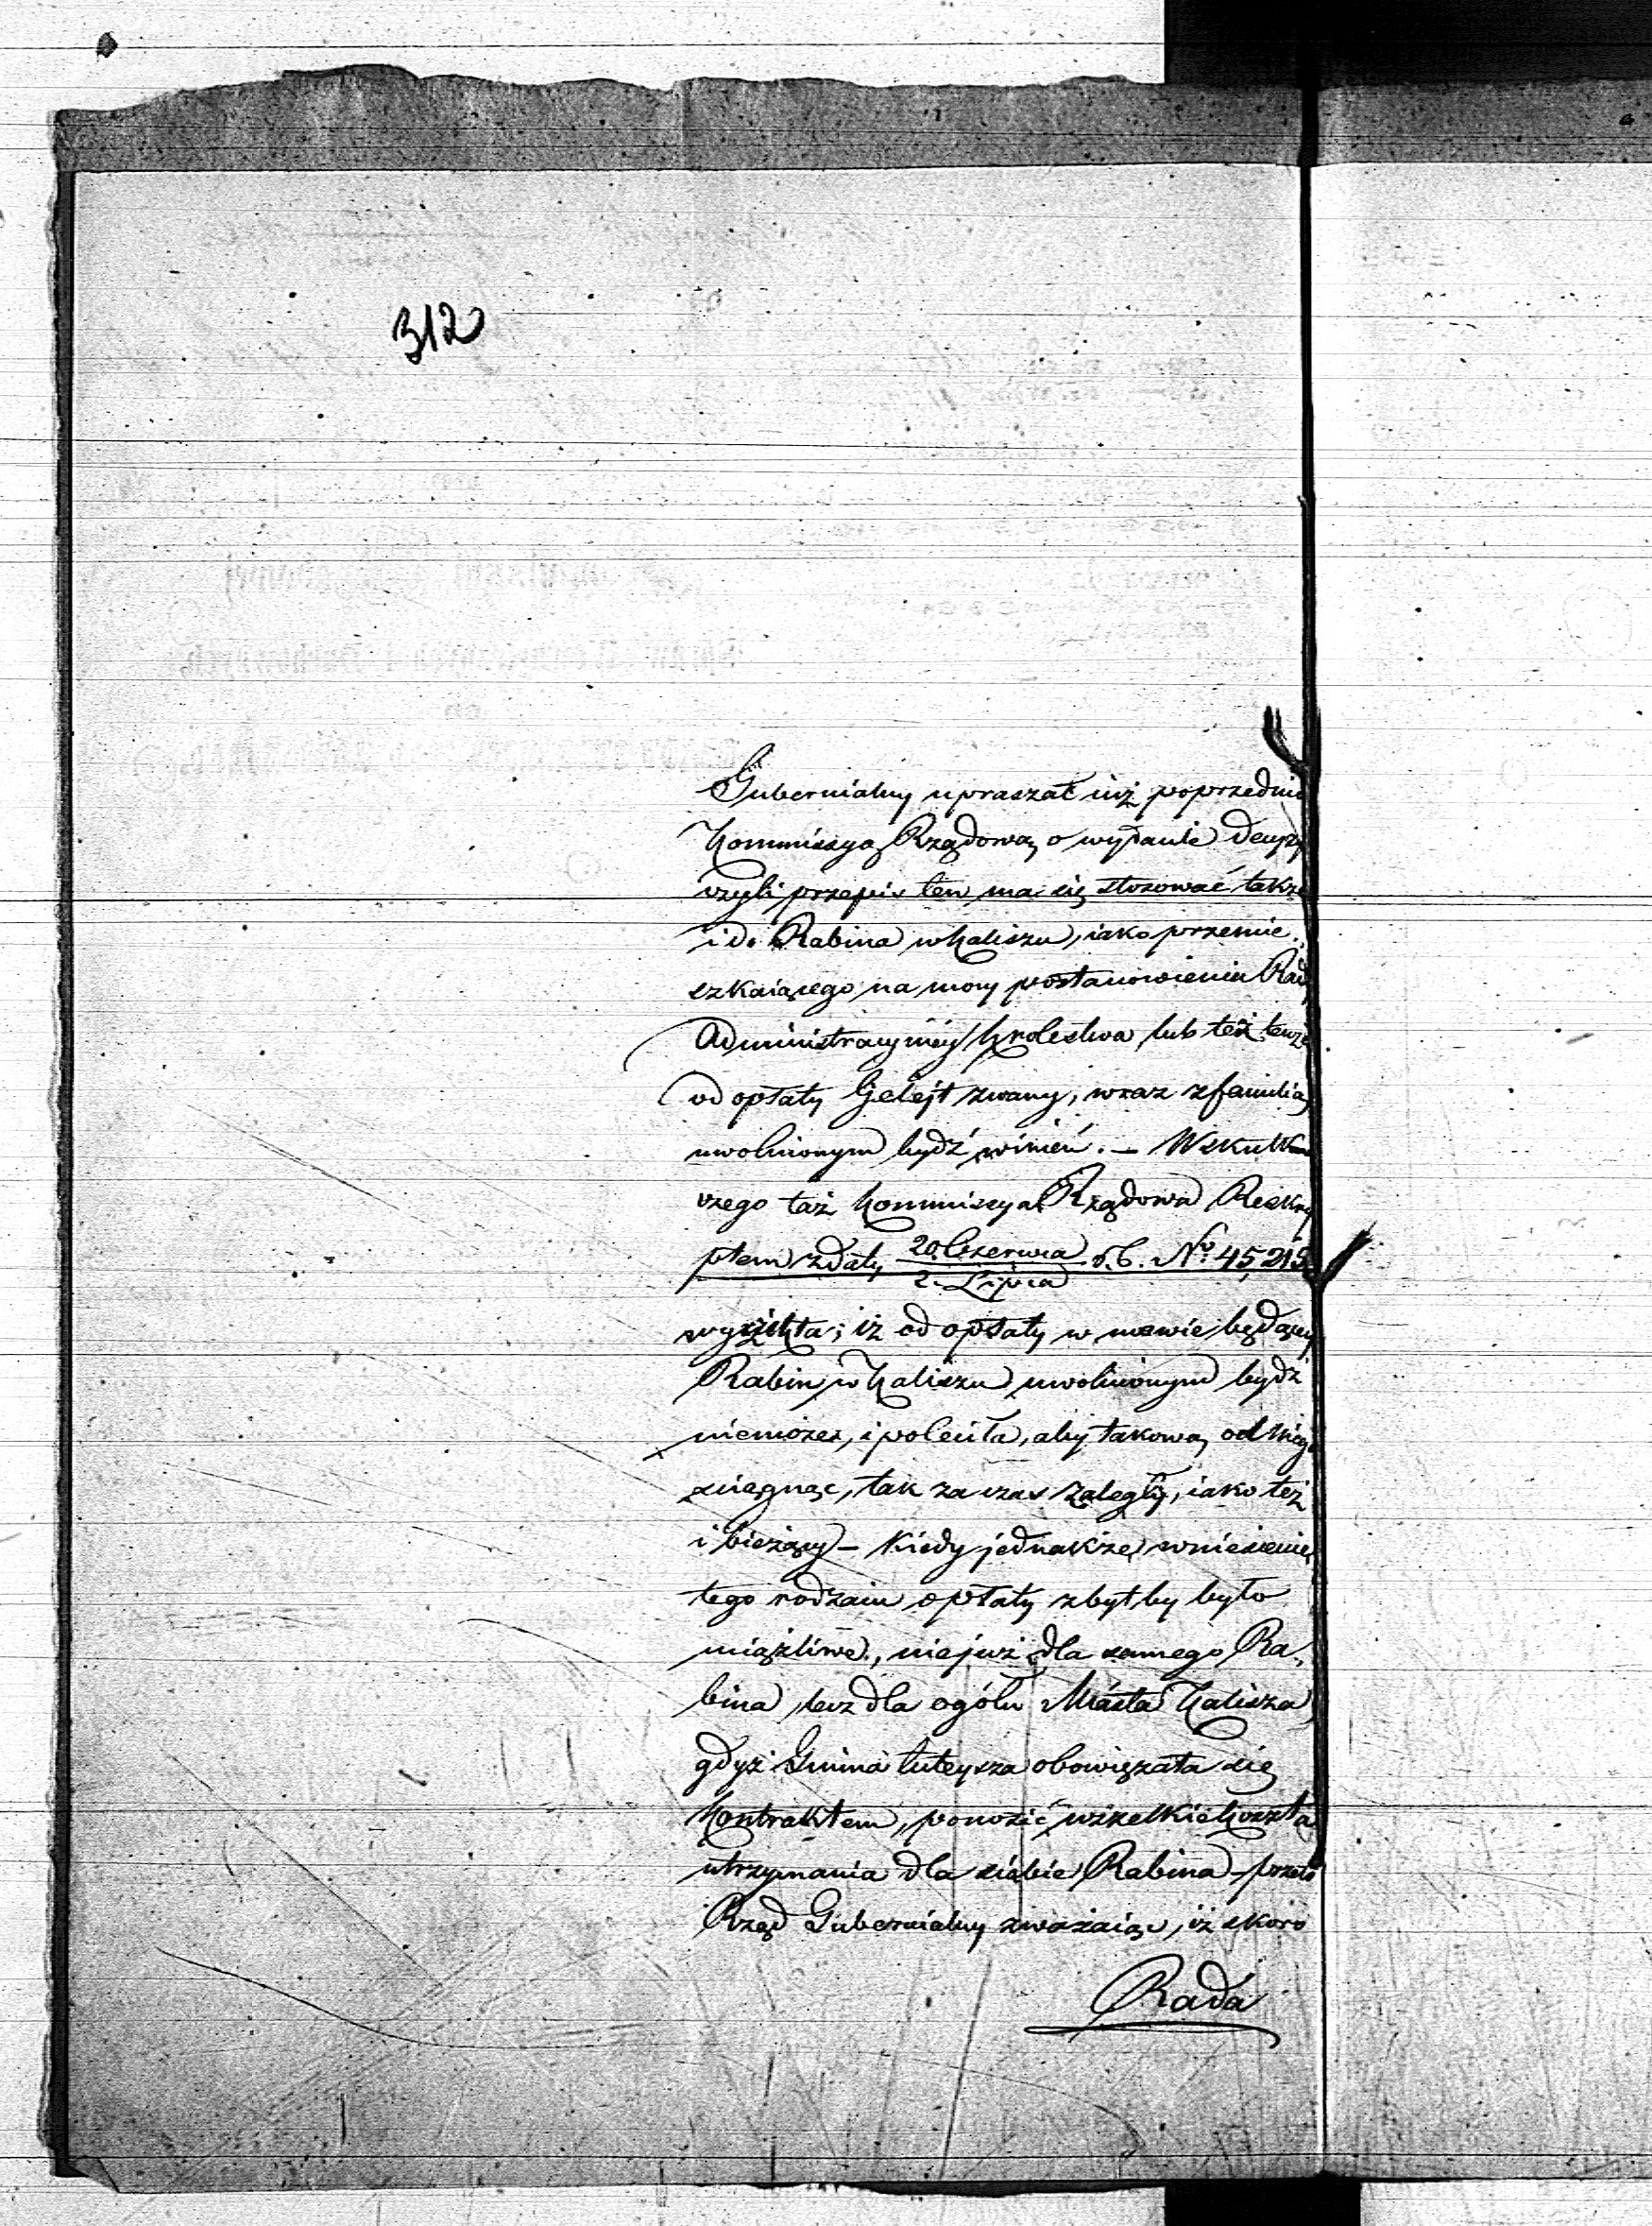 312
Gubernialny upraszał iuż poprzednio
Kommissyą Rządową o wydanie Decyzyi
czyli przepis ten ma się stosować także
i do Rabina w Kaliszu, iako przemie-
szkaiącego na mocy postanowienia Rady
Administracyiney Krolestwa lub też tenże
od opłaty Gelejt zwany, wraz z familią
uwolnionym bydź winien. — W skutku
czego taż Kommissya Rządowa Reskry
ptem z daty 20 Czerwca / 2 Lipca r.b. No 45,215
wyrzekła; iż od opłaty w mowie będącey
Rabin w Kaliszu uwolnionym bydź
niemoże, i poleciła, aby takową od niego
ściągnąć, tak za czas zaległy, iako też
i bieżący — Kiedy jednakże wniesienie
tego rodzaiu opłaty zbyt by było
uciążliwe, nie już dla samego Ra-
bina lecz dla ogółu Miasta Kalisza
gdyż Gmina tuteysza obowiązała się
Kontraktem, ponosić wszelkie koszta
utrzymania dla siebie Rabina — przeto
Rząd Gubernialny zważaiąc, iż skoro
Rada